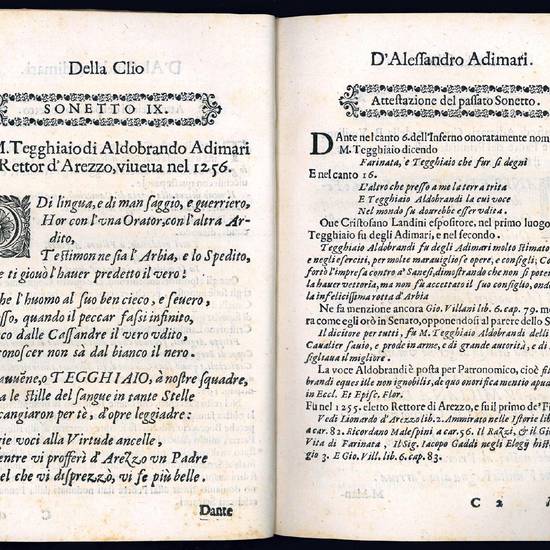 Della Clio
SONETTO IX.
M. Tegghiaio di Aldobrando Adimari
Rettor d'Arezzo, viueua nel 1256.
Di lingua, e di man saggio, e guerriero,
Hor con l'vna Orator, con l'altra Ar-
dito,
Testimon ne sia l'Arbia, e lo Spedito,
ti giouò l'hauer predetto il vero!
che l'huomo al suo ben cieco, e seuero,
sso, quando il peccar fassi infinito,
co dalle Cassandre il vero vdito,
conoscer non sà dal bianco il nero.
TEGGHIAIO, à nostre squadre,
le stille del sangue in tante Stelle
cangiaron per tè, d'opre leggiadre:
rie voci alla Virtude ancelle,
entre vi profferì d'Arezzo vn Padre
el che vi disprezzò, vi fe più belle.
C
Dante
D'Alessandro Adimari.
Attestazione del passato Sonetto.
Dante nel canto 6. dell'Inferno onoratamente nom
M. Tegghiaio dicendo
Farinata, e Tegghiaio che fur sì degni
E nel canto 16.
L'altro che presso a me la terra trita
E Tegghiaio Aldobrandi la cui voce
Nel mondo su dourebbe esser vdita.
Oue Cristofano Landini espositore, nel primo luogo
Tegghiaio fu degli Adimari, e nel secondo.
Tegghiaio Aldobrandi fu degli Adimari molto stimato
e negli eserciti, per molte marauigliose opere, e consigli; Co
fortò l'impresa contro a' Sanesi, dimostrando che non si poteu
la hauer vettoria, ma non fu accettato il suo consiglio, ond
la infelicissima rotta d'Arbia
Ne fa menzione ancora Gio. Villani lib. 6. cap. 79. m
ra come egli orò in Senato, opponendosi al parere dello S
Il dicitore per tutti, fu M. Tegghiaio Aldobrandi delli
Caualier sauio, e prode in arme, e di grande autorità, e di
sigliaua il migliore.
La voce Aldobrandi è posta per Patronomico, cioè fil
brandi eques ille non ignobilis, de quo onorifica mentio apu
in Eccl. et Episc. Flor.
Fu nel 1255. eletto Rettore di Arezzo, e fu il primo de' Fi
Vedi Lionardo d'Arezzo lib. 2. Ammirato nelle Istorie lib
car. 82. Ricordano Malespini a car. 56. Il Razzi, & il Gi
Vita di Farinata, Il Sig. Iacopo Gaddi negli Elogij histo
gio 3. E Gio. Vill. lib. 6. cap. 83.
C 2